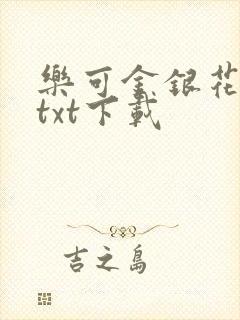 樂可金銀花
txt下載
吉之島